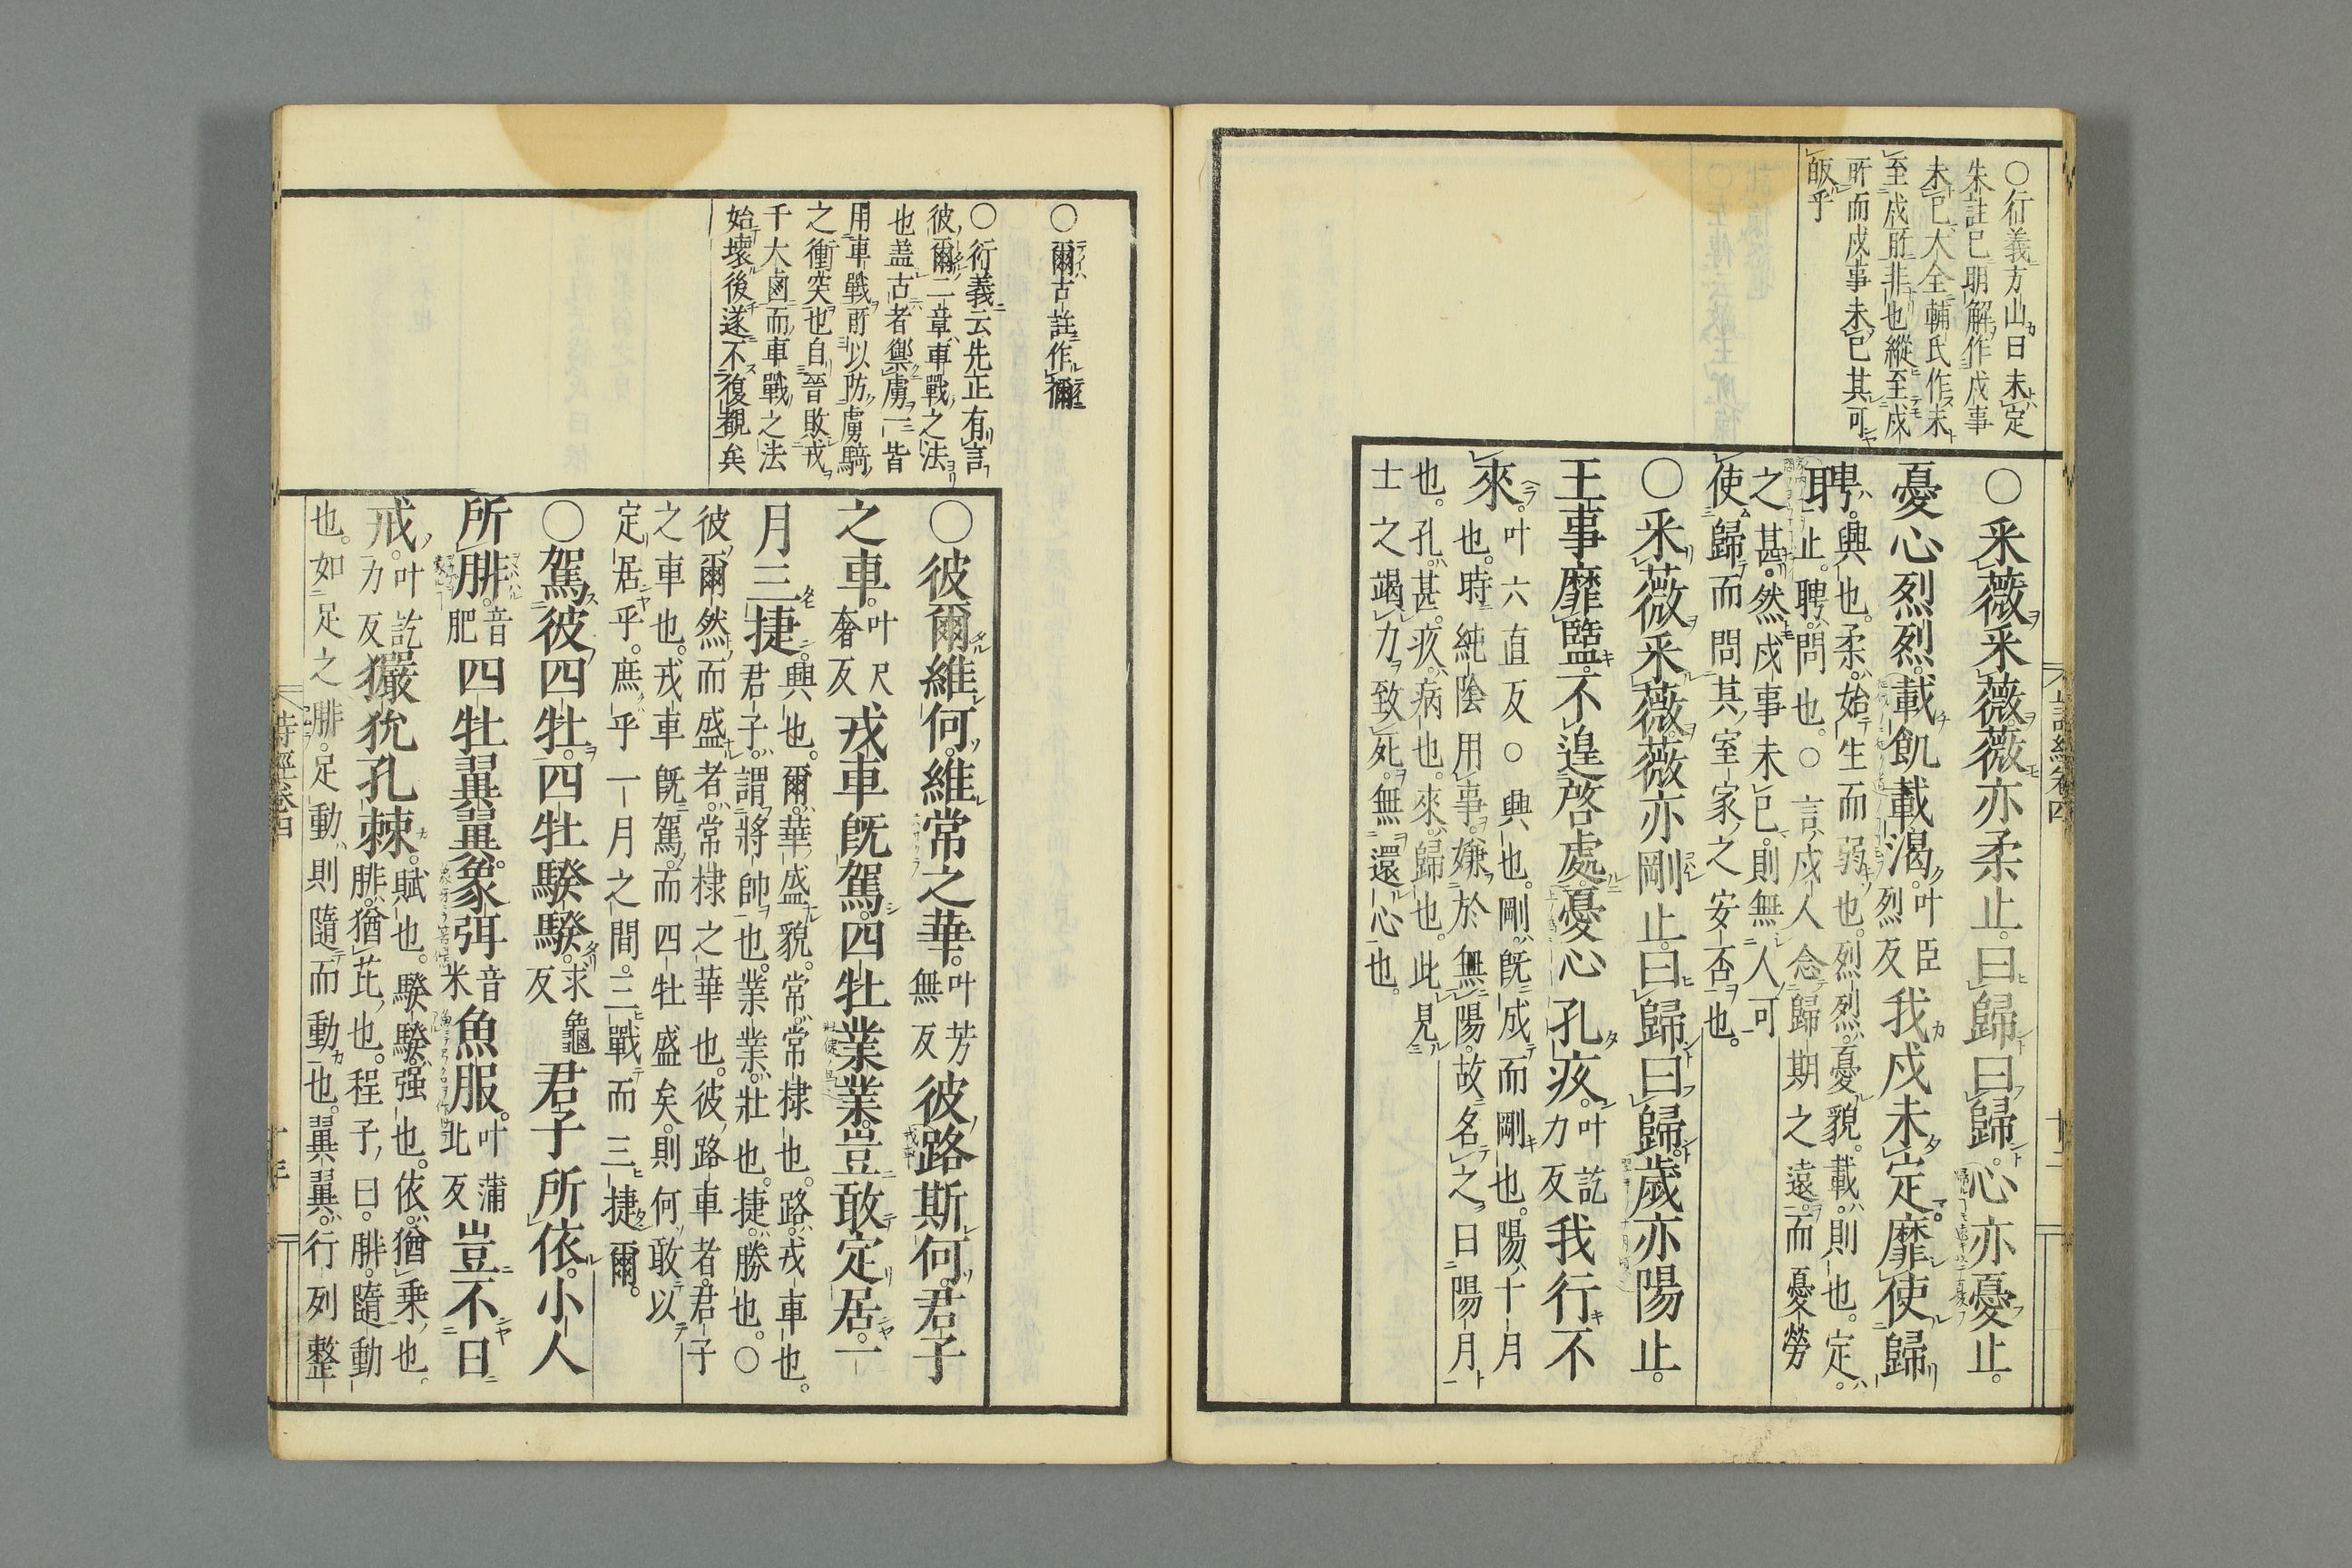 ○衍義方山曰未定
朱註已明解作戍事
未已大全輔氏作未
至戍所非也縱至戍
所而戍事未已其可
皈乎
○釆薇釆薇薇亦柔止。曰歸曰歸。心亦憂止。
憂心烈烈。載飢載渴。叶臣烈反我戍未定。靡使歸
聘。興也。柔。始生而弱也。烈烈。憂貌。載。則也。定。
止。聘。問也。○言戍人念歸期之遠。而憂勞
之甚。然戍事未已。則無人可
使歸而問其室家之安否也。
○釆薇釆薇。薇亦剛止。曰歸曰歸。歲亦陽止。
王事靡盬。不遑啓處。憂心孔疚。叶訖力反我行不
來。叶六直反○興也。剛。既成而剛也。陽。十月
也。時純陰用事。嫌於無陽。故名之曰陽月
也。孔。甚。疚。病也。來。歸也。此見
士之竭力致死。無還心也。
詩經卷四
○爾古註作薾
○衍義云先正有言
彼爾二章車戰之法
也蓋古者禦虜一皆
用車戰所以防虜騎
之衝突也自晉敗戎
千大鹵而車戰之法
始壞後遂不復覩矣
○彼爾維何。維常之華。叶芳無反彼路斯何。君子
之車。叶尺奢反戎車既駕。四牡業業。豈敢定居。一
月三捷。興也。爾。華盛貌。常。常棣也。路。戎車也。
君子。謂將帥也。業業。壯也。捷。勝也。○
彼爾然而盛者。常棣之華也。彼路車者。君子
之車也。戎車既駕。而四牡盛矣。則何敢以
定居乎。庶乎一月之間。三戰而三捷爾。
○駕彼四牡。四牡騤騤。求龜反君子所依。小人
所腓。音肥四牡翼翼。象弭音米魚服。叶蒲北反豈不日
戒。叶訖力反玁狁孔棘。賦也。騤騤。强也。依。猶乗也。
腓。猶芘也。程子曰。腓。隨動
也。如足之腓。足動。則隨而動也。翼翼。行列整
詩經卷四